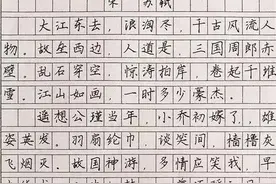 宋 苏轼
大江东去，浪淘尽，千古风流人
物。故垒西边，人道是，三国周郎赤
壁。乱石穿空，惊涛拍岸，卷起千堆
雪。江山如画，一时多少豪杰。
遥想公瑾当年，小乔初嫁了，雄
姿英发。羽扇纶巾，谈笑间，樯橹灰
飞烟灭。故国神游，多情应笑我，早